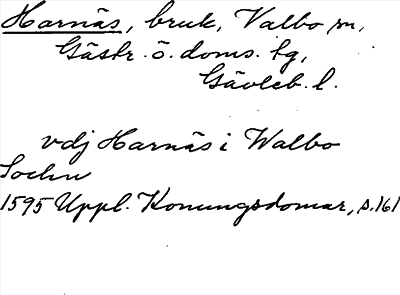 Harnäs, bruk, Valbo sn,
Gästr. ö. doms. tg,
Gävleb. l.
vdj Harnäs i Walbo
Sochn
1595 Uppl. Konungsdomar, s. 161